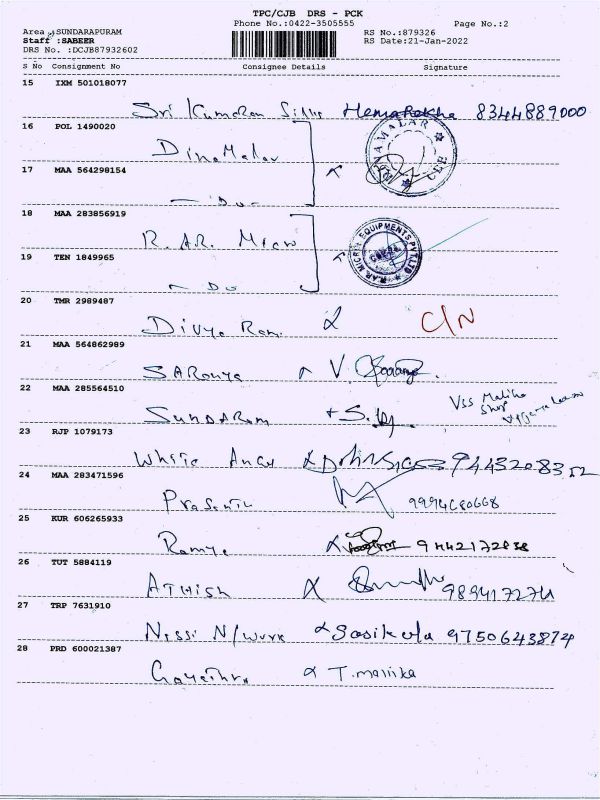 TPC/CJB DRS - PCK
Phone No.:0422-3505555 Page No.:2
Area :SUNDARAPURAM RS No.:879326
Staff :SABEER RS Date:21-Jan-2022
DRS No. :DCJB87932602
S No Consignment No Consignee Details Signature
15 IXM 501018077
Sri Kumaran Silks Hemarekha 8344889000
16 POL 1490020
DinaMalar DINAMALAR CBE
17 MAA 564298154
Do
18 MAA 283856919
R.AR. Micro R.AR. MICRO EQUIPMENTS PVT LTD
19 TEN 1849965
Do
20 TMR 2989487
Divya Rani C/N
21 MAA 564862989
SARanya V.
22 MAA 285564510
SUNDARam Vss Maliha Shop
23 RJP 1079173
White Angel 9443208352
24 MAA 283471596
Prasanth
25 KUR 606265933
Ramya 9442172838
26 TUT 5884119
AThish
27 TRP 7631910
Nessi N/Work Sasikala 9750643874
28 PRD 600021387
Gayathri T.mallika